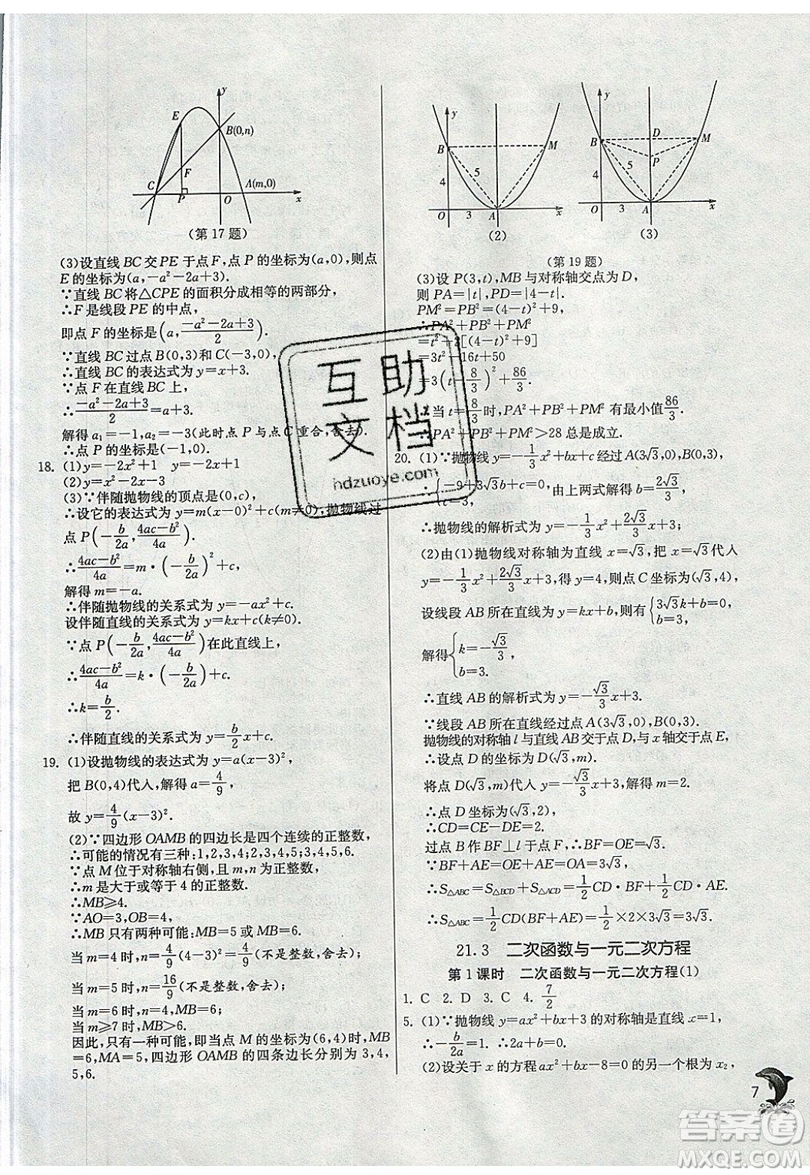 y
E
B(0,n)
F
C
P
O
A(m,0)
x
(第17题)
(3)设直线BC交PE于点F,点P的坐标为(a,0),则点
E的坐标为(a,-a²-2a+3).
∵直线BC将△CPE的面积分成相等的两部分,
∴F是线段PE的中点,
即点F的坐标是(a,(-a²-2a+3)/2).
∵直线BC过点B(0,3)和C(-3,0),
∴直线BC的表达式为y=x+3.
∵点F在直线BC上,
∴(-a²-2a+3)/2=a+3.
解得a₁=-1,a₂=-3(此时点P与点C重合,舍去).
∴点P的坐标是(-1,0).
18. (1)y=-2x²+1 y=-2x+1
(2)y=x²-2x-3
(3)∵伴随抛物线的顶点是(0,c),
∴设它的表达式为y=m(x-0)²+c(m≠0).∵抛物线过
点P(-b/2a,(4ac-b²)/4a).
∴(4ac-b²)/4a=m·(-b/2a)²+c,
解得m=-a.
∴伴随抛物线的关系式为y=-ax²+c.
设伴随直线的关系式为y=kx+c(k≠0).
∵点P(-b/2a,(4ac-b²)/4a)在此直线上,
∴(4ac-b²)/4a=k·(-b/2a)+c,
∴k=b/2.
∴伴随直线的关系式为y=b/2x+c.
19. (1)设抛物线的表达式为y=a(x-3)²,
把B(0,4)代入,解得a=4/9,
故y=4/9(x-3)².
(2)∵四边形OAMB的四边长是四个连续的正整数,
∴可能的情况有三种:1,2,3,4;2,3,4,5;3,4,5,6.
∵点M位于对称轴右侧,且m,n为正整数,
∴m是大于或等于4的正整数,
∴MB≥4.
∵AO=3,OB=4,
∴MB只有两种可能:MB=5或MB=6.
当m=4时,n=4/9(4-3)²=4/9(不是整数,舍去);
当m=5时,n=16/9(不是整数,舍去);
当m=6时,n=4,MB=6;
当m≥7时,MB>6;
因此,只有一种可能,即当点M的坐标为(6,4)时,MB
=6,MA=5,四边形OAMB的四条边长分别为3,4,
5,6.
y
B
M
4
5
O
3
A
x
(2)
y
D
B
M
P
4
5
O
3
A
x
(3)
(第19题)
(3)设P(3,t),MB与对称轴交点为D,
则PA=|t|,PD=|4-t|.
PM²=PB²=(4-t)²+9,
∴PA²+PB²+PM²
=t²+2[(4-t)²+9]
=3t²-16t+50
=3(t-8/3)²+86/3
∴当t=8/3时,PA²+PB²+PM²有最小值86/3.
∴PA²+PB²+PM²>28总是成立.
20. (1)∵抛物线y=-1/3x²+bx+c经过A(3√3,0),B(0,3),
∴{-9+3√3b+c=0, c=3, 由上两式解得b=2√3/3,
∴抛物线的解析式为y=-1/3x²+2√3/3x+3.
(2)由(1)抛物线对称轴为直线x=√3,把x=√3代入
y=-1/3x²+2√3/3x+3,得y=4,则点C坐标为(√3,4),
设线段AB所在直线为y=kx+b,则有{3√3k+b=0, b=3.
解得{k=-√3/3, b=3.
∴直线AB的解析式为y=-√3/3x+3.
∵线段AB所在直线经过点A(3√3,0),B(0,3),
抛物线的对称轴l与直线AB交于点D,与x轴交于点E,
∴设点D的坐标为(√3,m).
将点D(√3,m)代入y=-√3/3x+3,解得m=2,
∴点D坐标为(√3,2),
∴CD=CE-DE=2.
过点B作BF⊥l于点F,∴BF=OE=√3.
∵BF+AE=OE+AE=OA=3√3,
∴S△ABC=S△BCD+S△ACD=1/2CD·BF+1/2CD·AE,
∴S△ABC=1/2CD(BF+AE)=1/2×2×3√3=3√3.
21.3 二次函数与一元二次方程
第1课时 二次函数与一元二次方程(1)
1. C 2. D 3. C 4. 7/2
5. (1)∵抛物线y=ax²+bx+3的对称轴是直线x=1,
∴-b/2a=1.∴2a+b=0.
(2)设关于x的方程ax²+bx-8=0的另一个根为x₂,
7
互助
文档
hdzuoye.com
答案圈
MXQE.COM